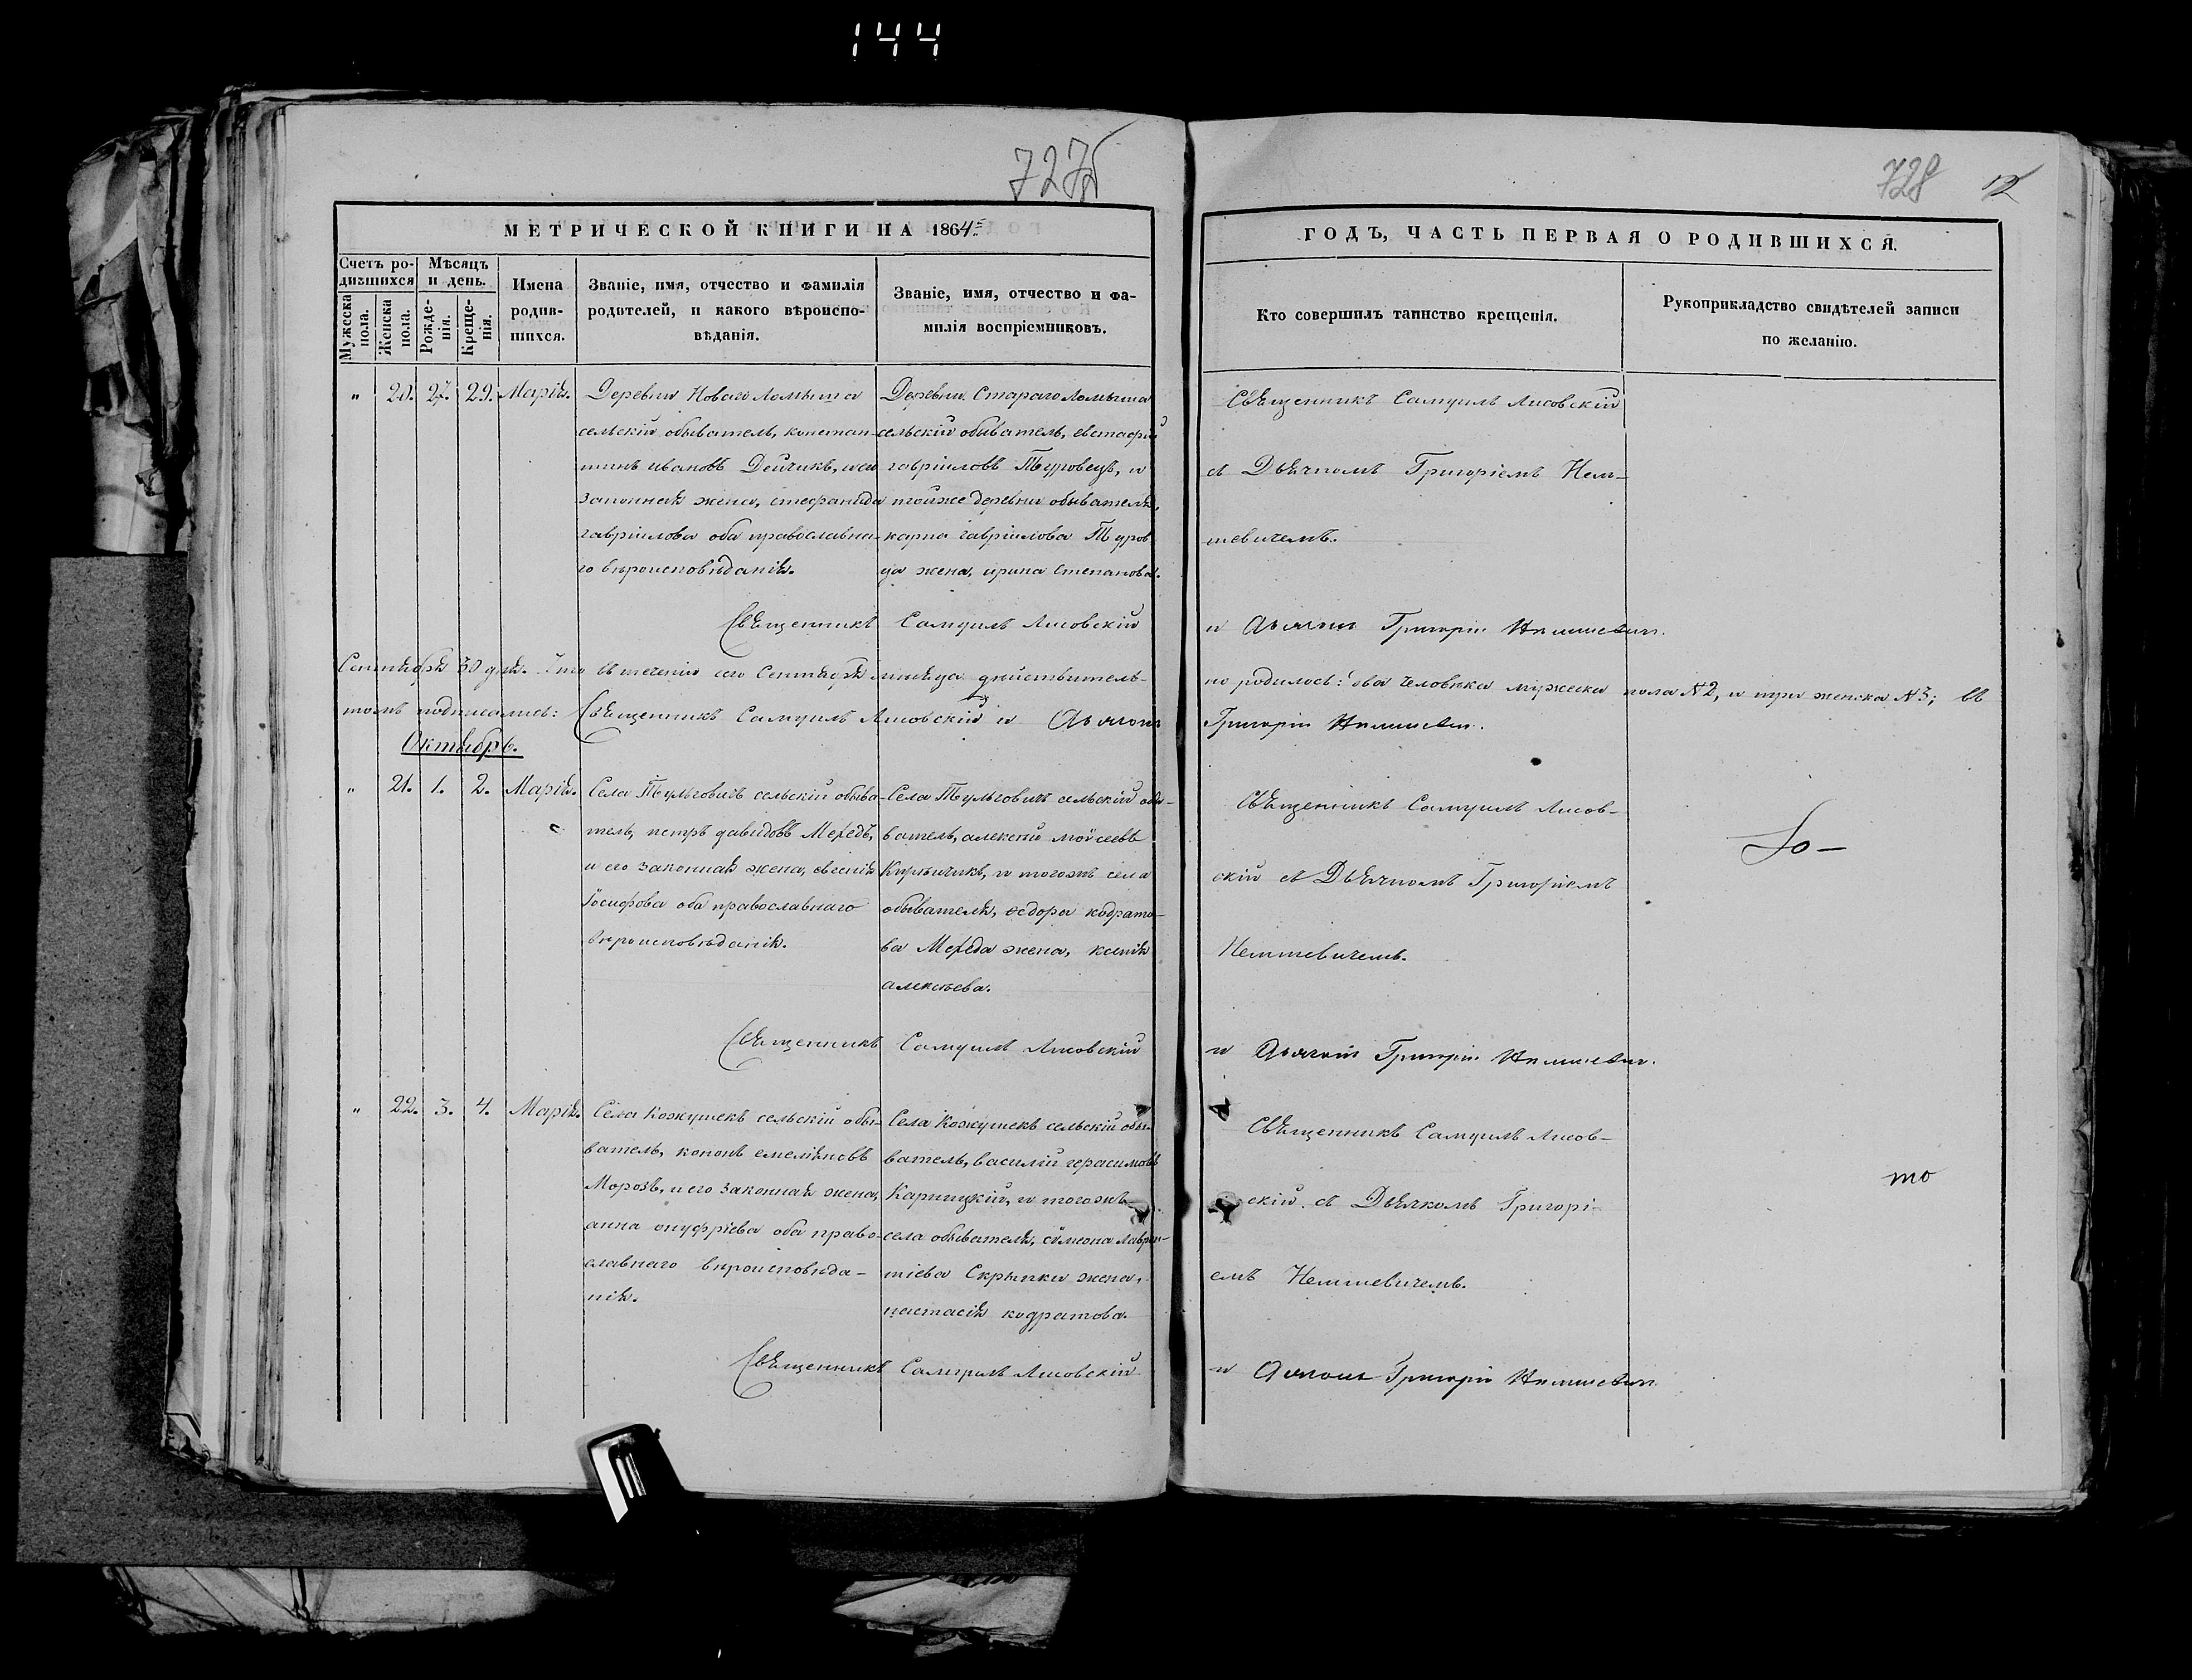 144
727об
728
МЕТРИЧЕСКОЙ КНИГИ НА 1864й
Счетъ ро-
дившихся
Мужеска пола.
Женска пола.
Мѣсяцъ
и день.
Рожде-
нія.
Креще-
нія.
Имена
родив-
шихся.
Званіе, имя, отчество и фамилія
родителей, и какого вѣроиспо-
вѣданія.
Званіе, имя, отчество и фа-
милія воспріемниковъ.
ГОДЪ, ЧАСТЬ ПЕРВАЯ О РОДИВШИХСЯ.
Кто совершилъ таинство крещенія.
Рукоприкладство свидѣтелей записи
по желанію.
" 20. 27. 29. Марія.
Деревни Новаго Ломыша
сельскій обыватель, констан-
тинъ ивановъ Дейчикъ, и его
законная жена, стефанида
гавріилова оба православна-
го вѣроисповѣданія.
Деревни Стараго Ломыша
сельскій обыватель, евстафій
гавріиловъ Туровецъ, и
тойже деревни обывателя,
карпа гавріилова Туров
ца жена, ирина степанова.
Священникъ Самуилъ Лисовскій
съ Дьячкомъ Григоріемъ Нем-
шевичемъ.
Священникъ Самуилъ Лисовскій и Дьячокъ Григорій Немшевич.
Сентября 30 дня. Что въ теченіи сего Сентября мѣсяца дѣйствитель-
но родилось: два человѣка мужеска пола N 2, и три женска N 3; въ
томъ подписались: Священникъ Самуилъ Лисовскій и Дьячокъ
Григорій Немшевич.
Октябрь.
" 21. 1. 2. Марія.
Села Тульговичъ сельскій обыва-
тель, петръ давидовъ Мефедъ,
и его законная жена, евгенія
Іосифова оба православнаго
вѣроисповѣданія.
Села Тульговичъ сельскій обы-
ватель, алексѣй моѵсеевъ
Кирьичикъ, и тогожъ села
обывателя, ѳедора кодрато-
ва Мефеда жена, ксенія
алексѣева.
Священникъ Самуилъ Лисов-
скій съ Дьячкомъ Григоріемъ
Немшевичемъ.
Священникъ Самуилъ Лисовскій и Дьячокъ Григорій Немшевич.
" 22. 3. 4. Марія.
Села Кожушекъ сельскій обы-
ватель, кононъ емеліяновъ
Морозъ, и его законная жена,
анна онуфріева оба право-
славнаго вѣроисповѣда-
нія.
Села Кожушекъ сельскій обы-
ватель, василій герасимовъ
Карпицкій, и тогожъ
села обывателя, сѵмеона лаврен-
тіева Скрыпки жена,
настасія кодратова.
Священникъ Самуилъ Лисов-
скій съ Дьячкомъ Григорі-
емъ Немшевичемъ.
то
Священникъ Самуилъ Лисовскій и Дьячокъ Григорій Немшевич.